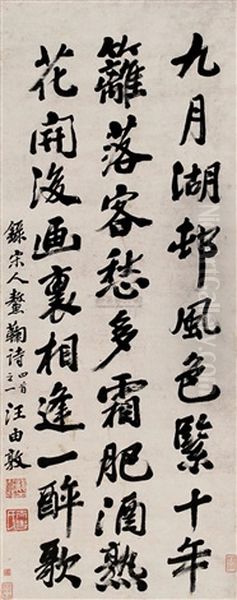 九月湖邨風色緊十年
籬落客愁多霜肥酒熟
花開後画裏相逢一醉歌
錄宋人螯鞠詩四首之一汪由敦